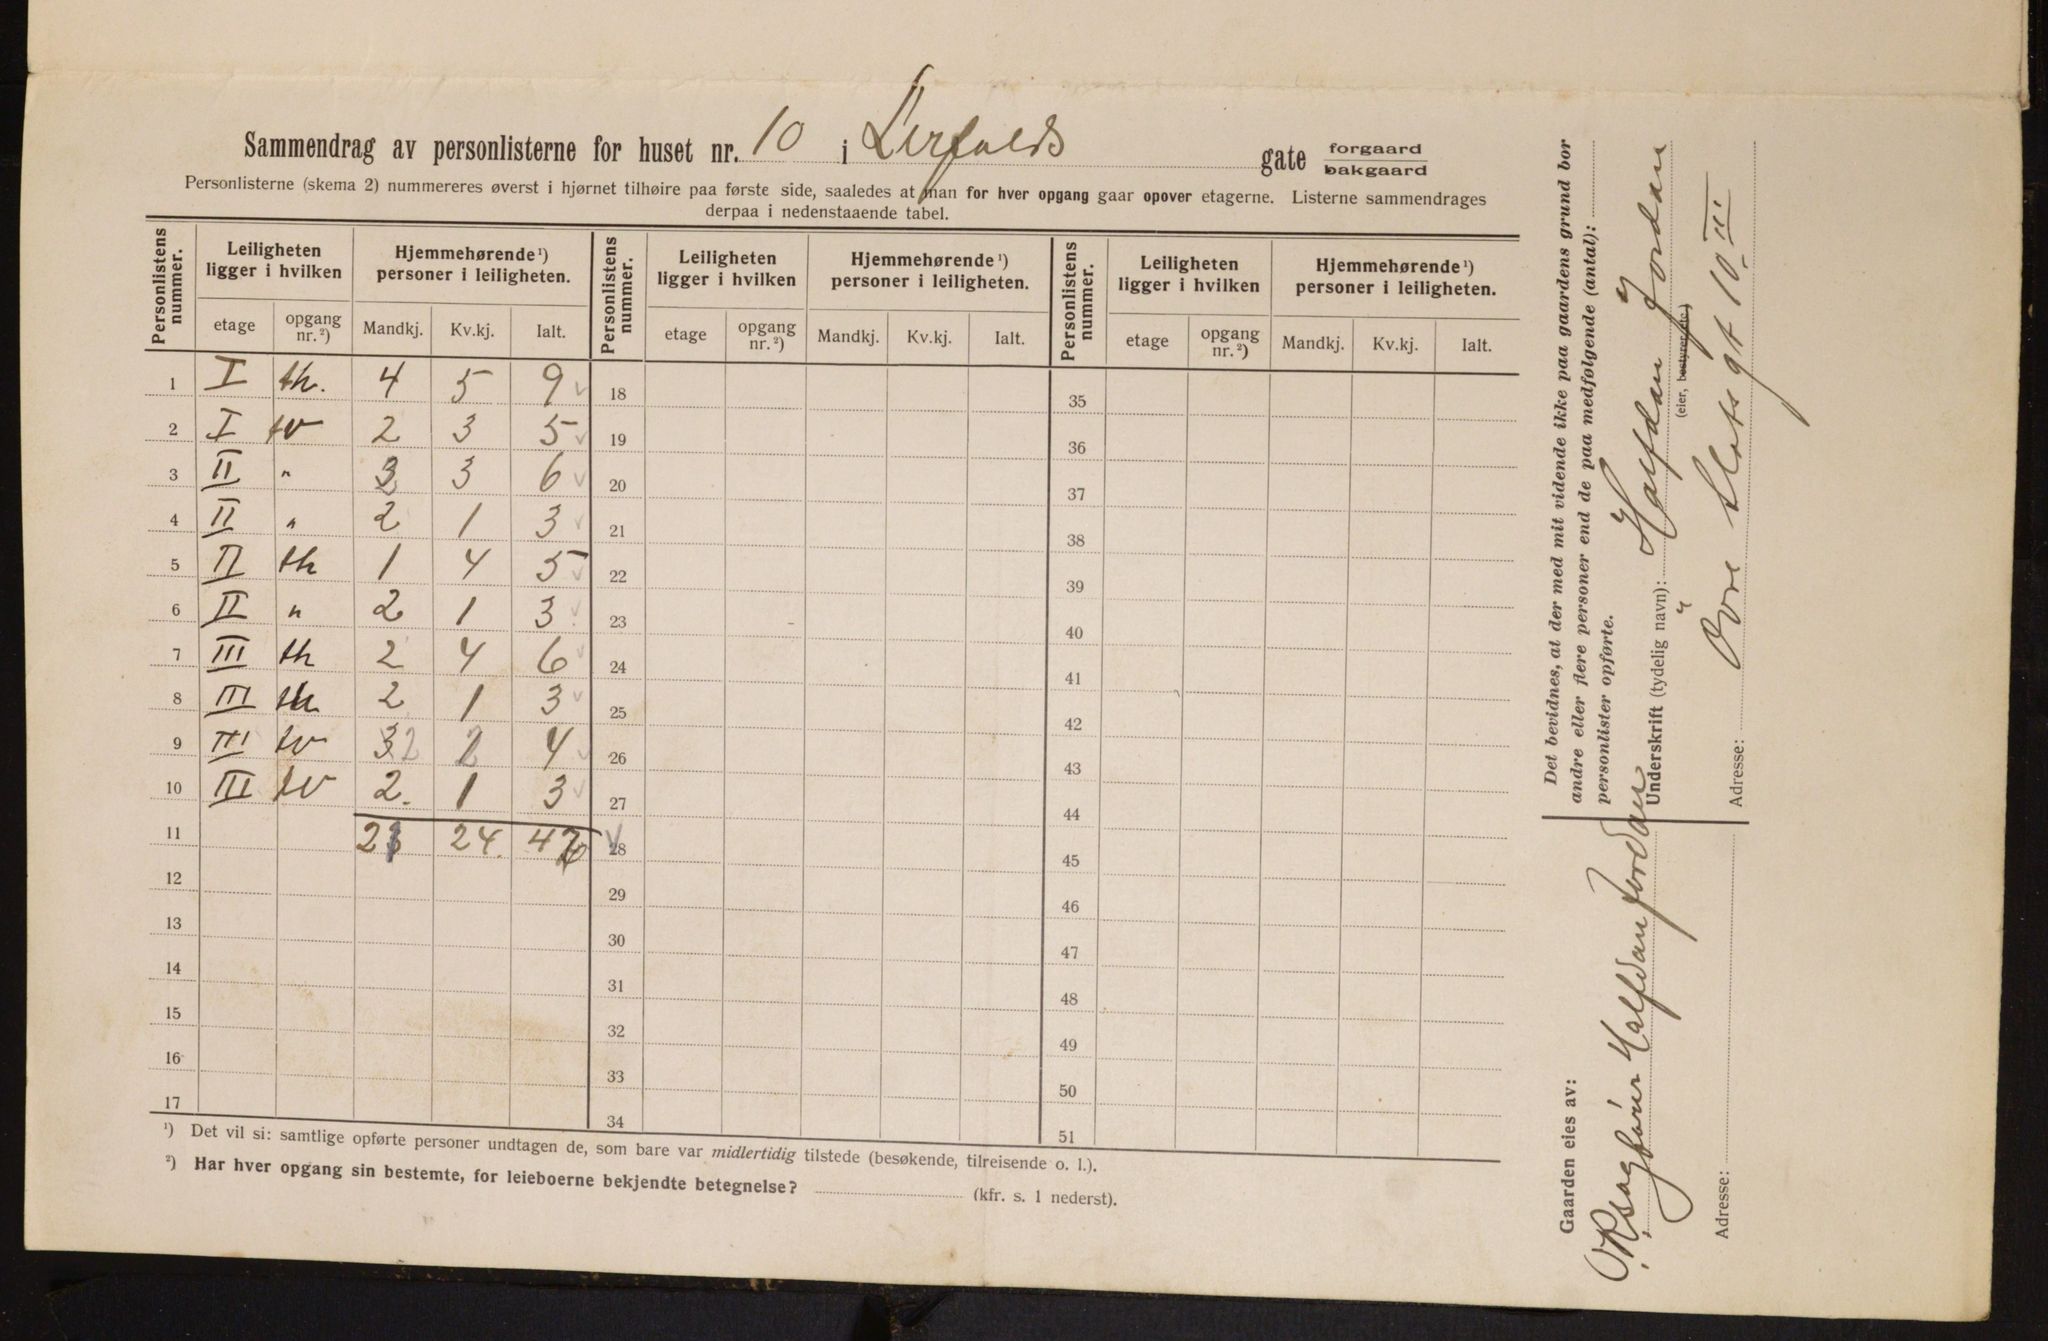 Sammendrag av personlisterne for huset nr. 10 i Lerfalds gate forgaard bakgaard
Personlisterne (skema 2) nummereres øverst i hjørnet tilhøire paa første side, saaledes at man for hver opgang gaar opover etagerne. Listerne sammendrages
derpaa i nedenstaaende tabel.
Personlistens nummer. Leiligheten ligger i hvilken Hjemmehørende ¹) personer i leiligheten. Personlistens nummer. Leiligheten ligger i hvilken Hjemmehørende ¹) personer i leiligheten. Personlistens nummer. Leiligheten ligger i hvilken Hjemmehørende ¹) personer i leiligheten.
etage opgang nr. ²) Mandkj. Kv.kj. Ialt. etage opgang nr. ²) Mandkj. Kv.kj. Ialt. etage opgang nr. ²) Mandkj. Kv.kj. Ialt.
1 I th. 4 5 9 18 35
2 I tv 2 3 5 19 36
3 II " 3 3 6 20 37
4 II " 2 1 3 21 38
5 II th 1 4 5 22 39
6 II " 2 1 3 23 40
7 III th 2 4 6 24 41
8 III th 2 1 3 25 42
9 III tv 3 2 2 4 26 43
10 III tv 2. 1 3 27 44
11 24. 28 45
12 29 46
13 30 47
14 31 48
15 32 49
16 33 50
17 34 51
¹) Det vil si: samtlige opførte personer undtagen de, som bare var midlertidig tilstede (besøkende, tilreisende o. l.).
²) Har hver opgang sin bestemte, for leieboerne bekjendte betegnelse? (kfr. s. 1 nederst).
Det bevidnes, at der med mit vidende ikke paa gaardens grund bor
andre eller flere personer end de paa medfølgende (antal):
personlister opførte.
Underskrift (tydelig navn): Halfdan Jordan
(eier, bestyrer etc.)
Adresse: Övre Slotsgt 10 III
Gaarden eies av:
O.R.sagförer Halfdan Jordan
Adresse: